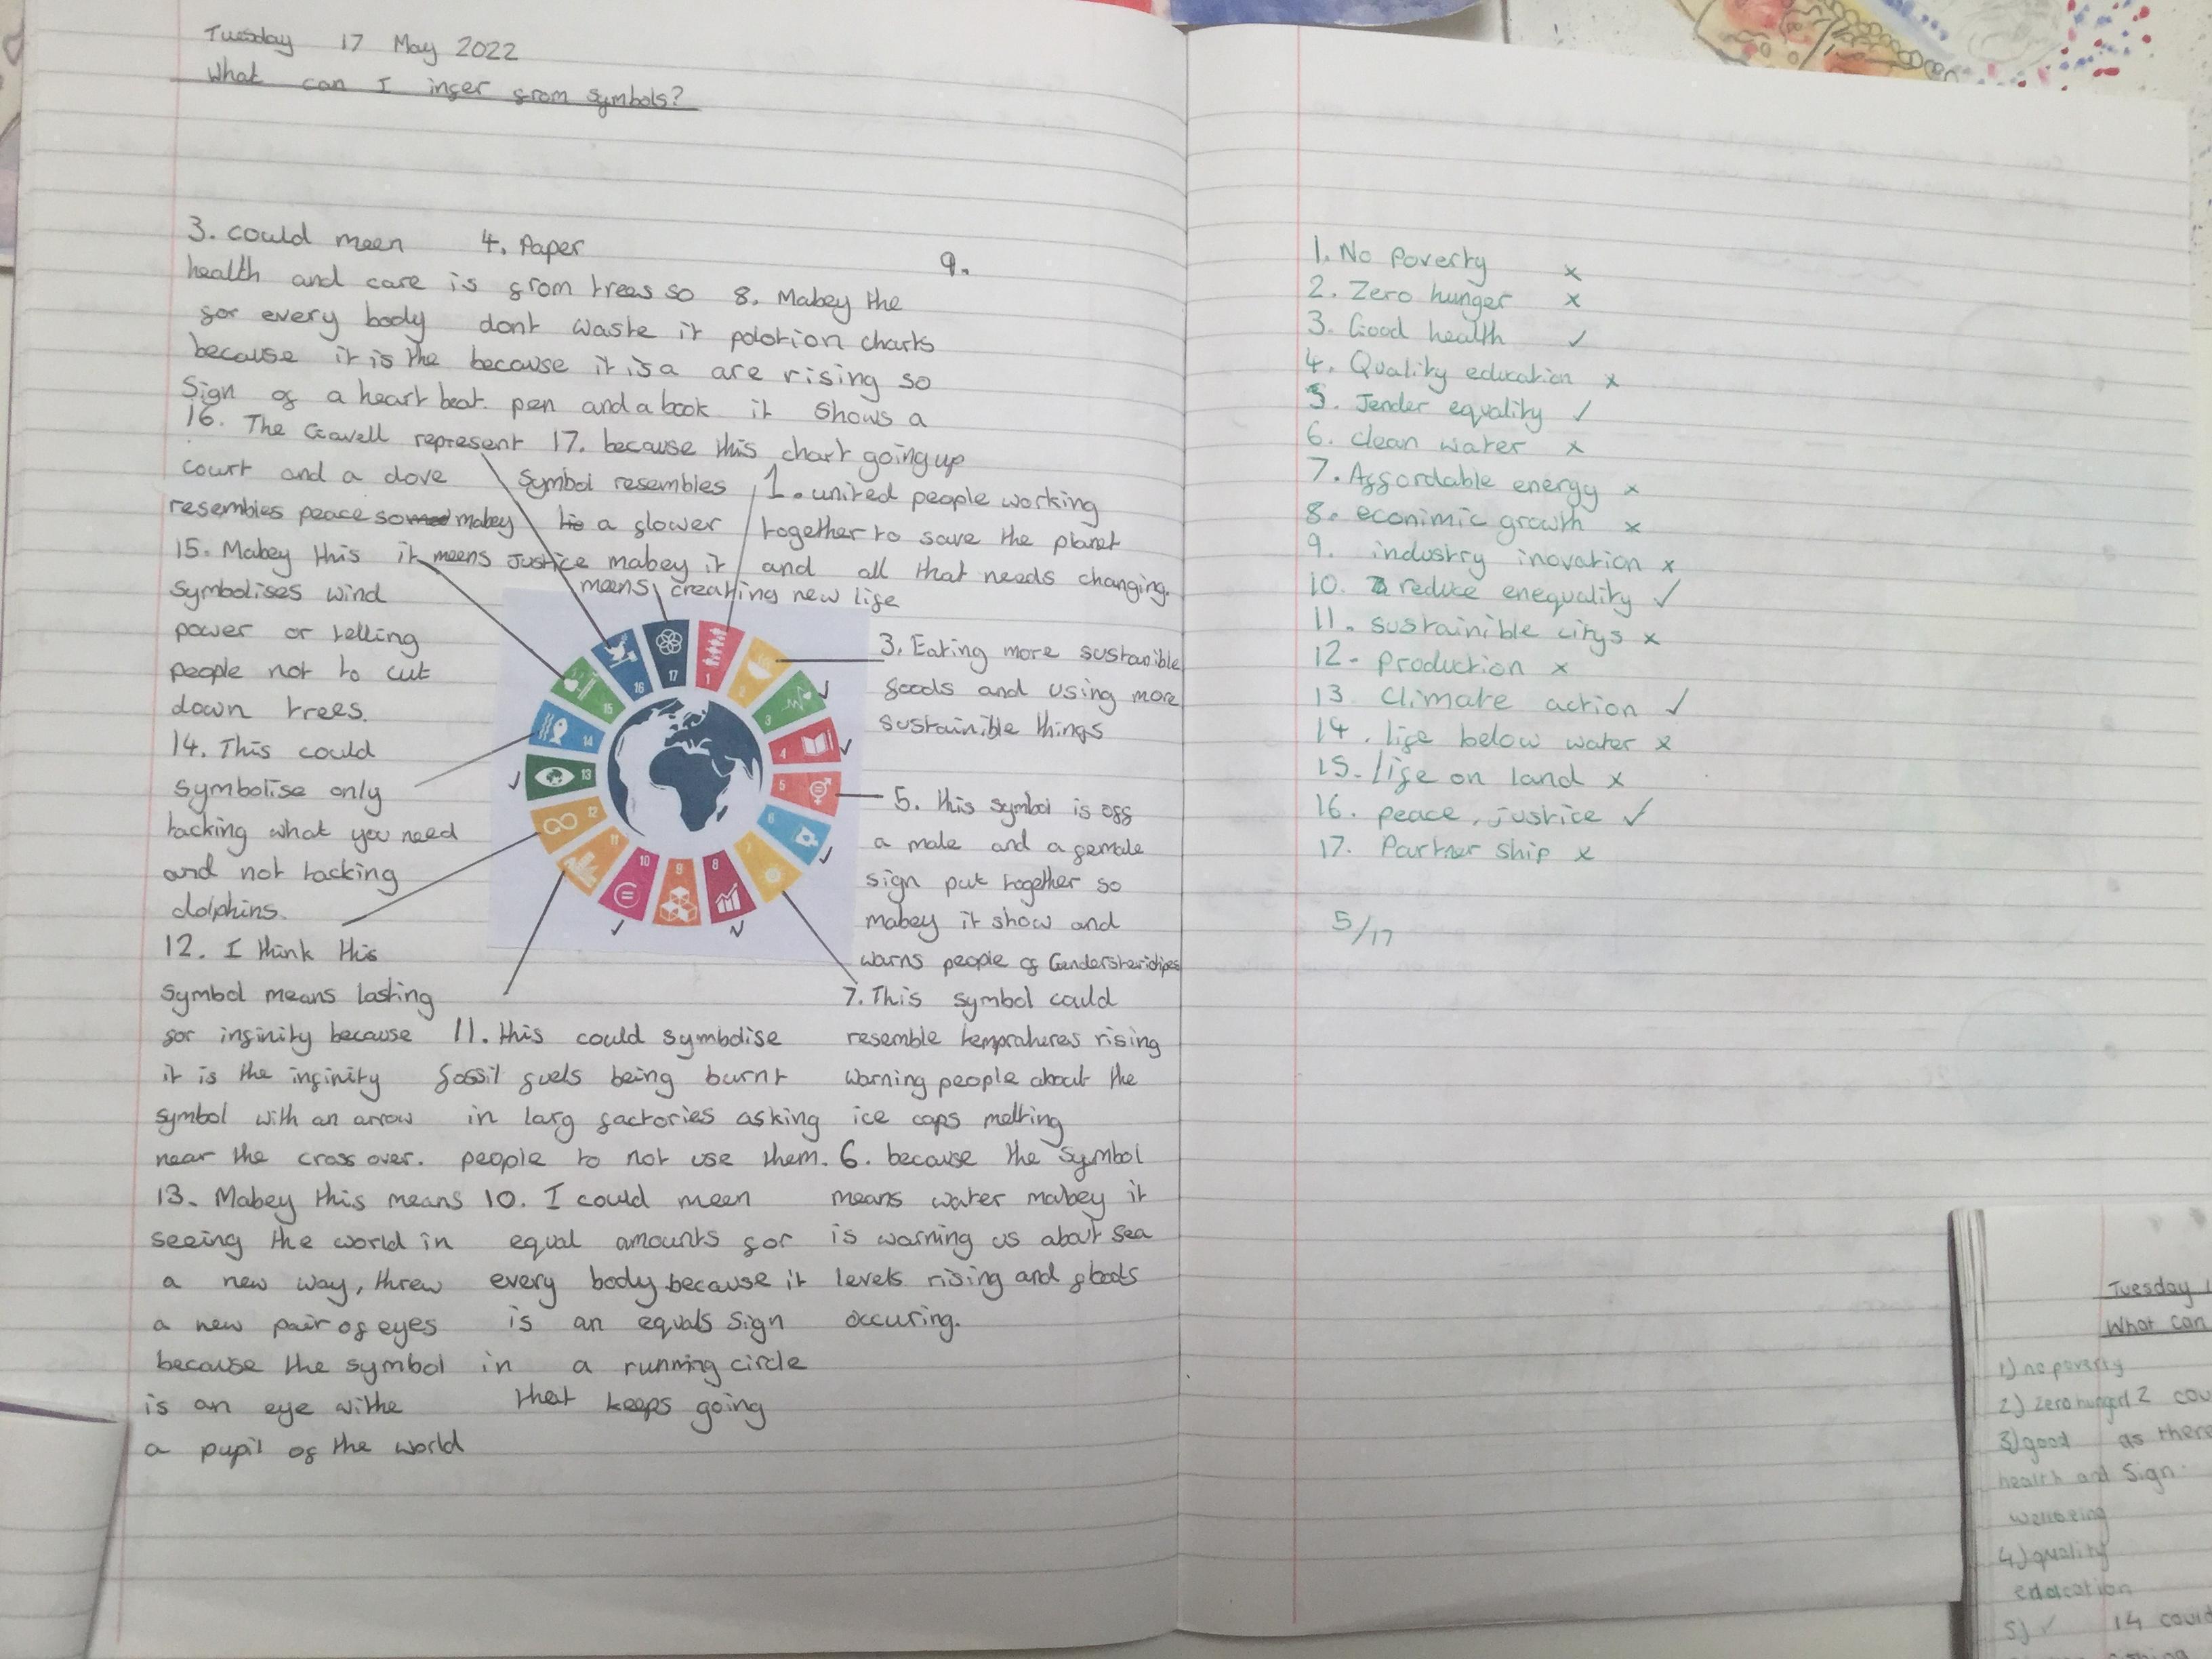 Tuesday 17 May 2022
What can I infer from symbols?
3. could meen
health and care
for every body
because it is the
sign of a heart beat.
4. Paper
is from trees so
dont waste it
because it is a
pen and a book
9.
8. Mabey the
polotion charts
are rising so
it shows a
chart going up
16. The Gavell represent
court and a dove
resembles peace so mabey
it means justice
17. because this
symbol resembles
a flower
mabey it
means creating new life
1. united people working
together to save the planet
and all that needs changing.
15. Mabey this
symbolises wind
power or telling
people not to cut
down trees.
14. This could
symbolise only
tacking what you need
and not tacking
dolphins.
12. I think this
symbol means lasting
for infinity because
it is the infinity
symbol with an arrow
near the cross over.
13. Mabey this means
seeing the world in
a new way, threw
a new pair of eyes
because the symbol
is an eye withe
a pupil of the world
11. this could symbolise
fossil fuels being burnt
in larg factories asking
people to not use them.
10. I could meen
equal amounts for
every body because it
is an equals sign
in a running circle
that keeps going
3. Eating more sustanible
foods and using more
sustainible things
5. this symbol is off
a male and a female
sign put together so
mabey it show and
warns people of
7. This symbol could
resemble tempratures rising
warning people about the
ice caps melting
6. because the symbol
means water mabey it
is warning us about sea
levels rising and floods
occuring.
1
2
3
4
5
6
7
8
9
10
11
12
13
14
15
16
17
1. No Poverty x
2. Zero hunger x
3. Good health ✓
4. Quality education x
5. Jender equality ✓
6. clean water x
7. Affordable energy x
8. econimic growth x
9. industry inovation x
10. reduce enequality ✓
11. sustainible citys x
12. production x
13 climate action ✓
14. life below water x
15. life on land x
16. peace, justice ✓
17. Partner ship x
5/17
Tuesday 1
What can
1) no poverty
2) zero hunger
3) good
health and
wellbeing
4) quality
education
5) ✓
2 cou
as there
sign.
14 could